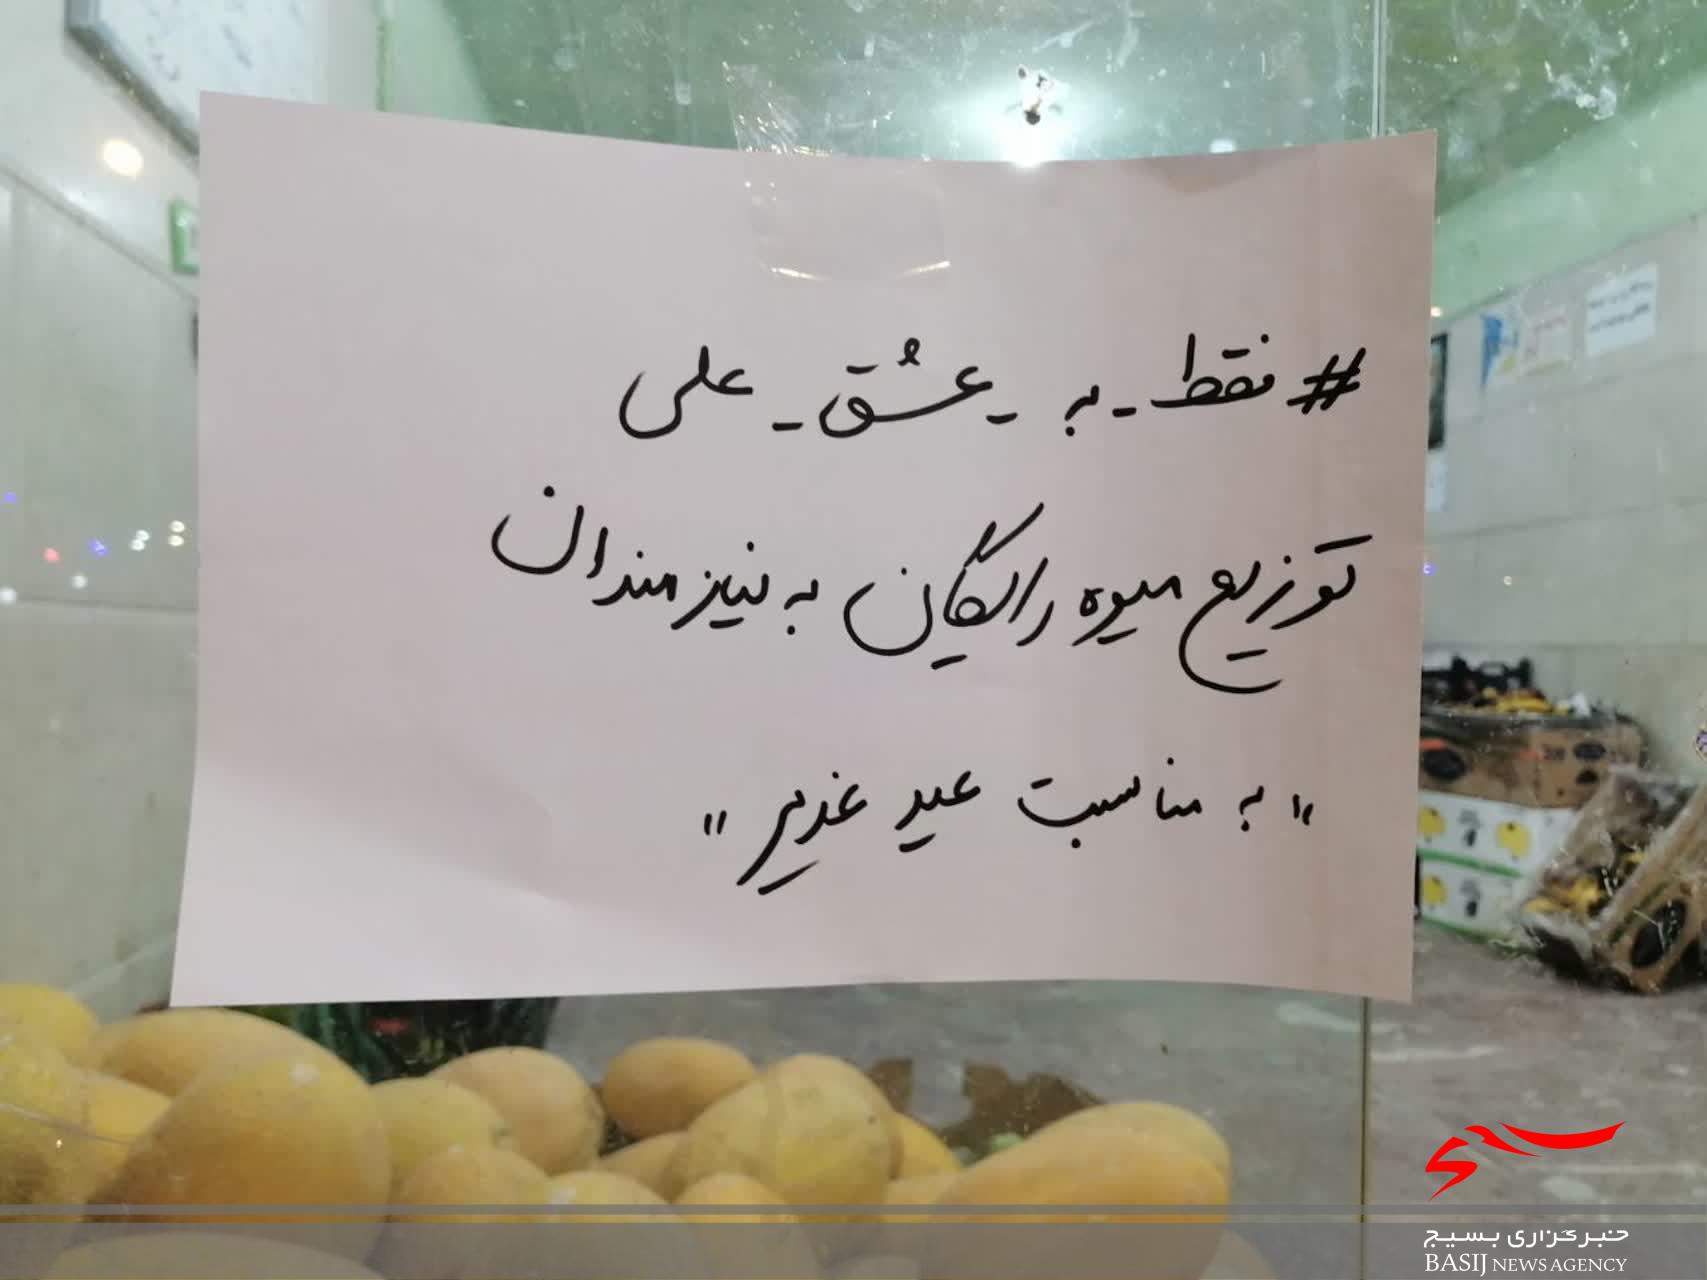 #فقط_به_عشق_علی
توزیع میوه رایگان به نیازمندان
"به مناسبت عید غدیر"
خبرگزاری بسیج
BASIJ NEWS AGENCY